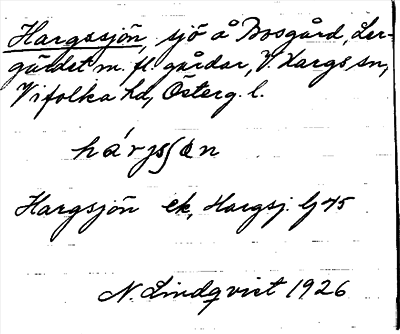 Hargssjön, sjö å Bosgård, Ler-
gärdet m. fl. gårdar, V. Hargs sn,
Vifolka hd, Österg. l.
Hargsjön ek, Hargsj. Gj 45
N. Lindqvist 1926